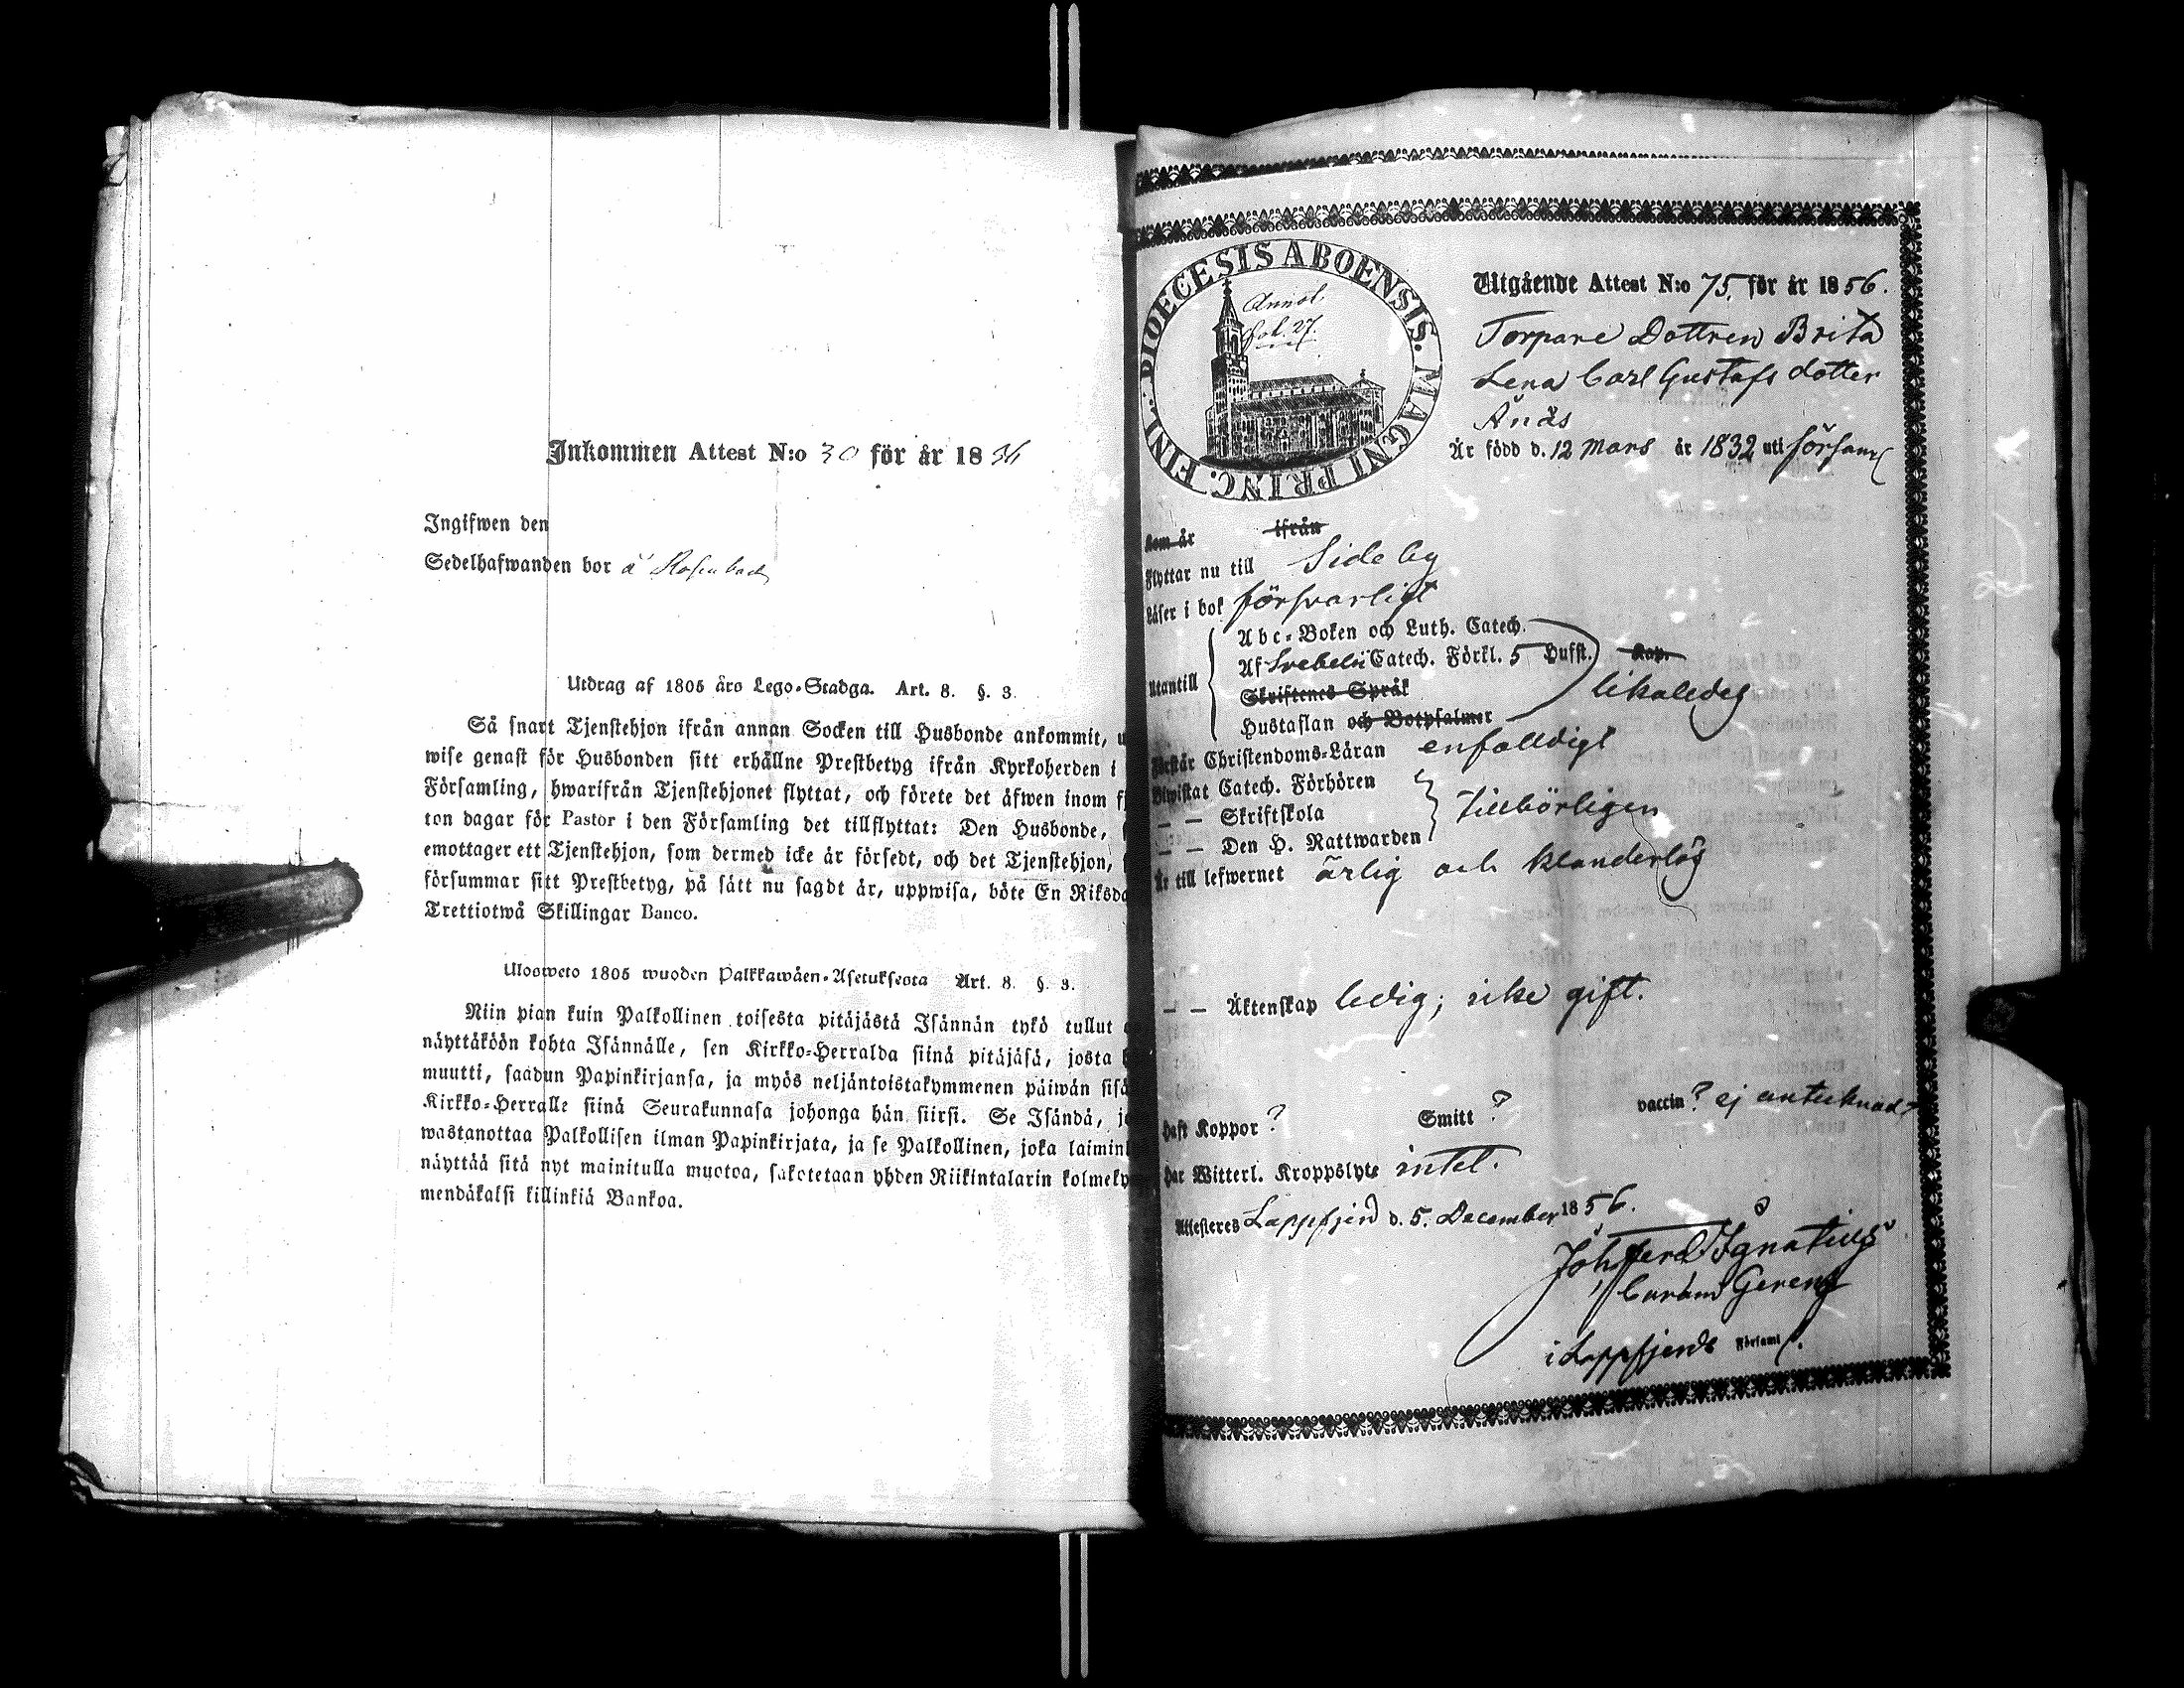 Inkommen Attest N:o 30 för år 1856
Ingifwen den
Sedelhafwanden bor å Rosenback
Utdrag af 1805 års Lego-Stadga. Art. 8. §. 3.
Så snart Tjenstehjon ifrån annan Socken till Husbonde ankommit, u
wise genast för Husbonden sitt erhållne Prestbetyg ifrån Kyrkoherden i
Församling, hwarifrån Tjenstehjonet flyttat, och förete det äfwen inom fj
ton dagar för Pastor i den Församling det tillflyttat: Den Husbonde,
emottager ett Tjenstehjon, som dermed icke är försedt, och det Tjenstehjon,
försummar sitt Prestbetyg, på sätt nu sagdt är, uppwisa, böte En Riksda
Trettiotwå Skillingar Banco.
Ulosweto 1805 wuoden Palkkawäen-Asetuksesta Art. 8. §. 3.
Niin pian kuin Palkollinen toisesta pitäjästä Isännän tykö tullut
näyttäköön kohta Isännälle, sen Kirkko-Herralda siinä pitäjäsä, josta h
muutti, saadun Papinkirjansa, ja myös neljäntoistakymmenen päiwän sisä
Kirkko-Herralle siinä Seurakunnasa johonga hän siirsi. Se Isändä, jo
wastanottaa Palkollisen ilman Papinkirjata, ja se Palkollinen, joka laimin
näyttää sitä nyt mainitulla muotoa, sakotetaan yhden Riikintalarin kolmeky
mendäkaksi killinkiä Bankoa.
DIOECESIS ABOENSIS. MAGNI PRINC. FINL.
Annot.
fol. 27.
Utgående Attest N:o 75. för år 1856.
Torpare Dottren Brita
Lena Carl Gustafs dotter
Ånäs
Är född d. 12 Mars år 1832 uti församl
Kom år ifrån
Flyttar nu till Sideby
Läser i bok försvarligt
Utantill
Abc-Boken och Luth. Catech.
Af Svebelii Catech. Förkl. 5 Hufst. Kap.
Skriftenes Språk
likaledes
Hustaflan och Botpsalmer
Förstår Christendoms-Läran enfaldigt
Biwistat Catech. Förhören
— — Skriftskola
tillbörligen
— — Den H. Nattwarden
Är till lefwernet ärlig och klanderlös
— — Äktenskap ledig; icke gift.
Haft Koppor ? Smitt ? vaccin ? ej antecknadt
Har Witterl. Kroppslyte intet.
Attesteres Lappfjerd d. 5. December 1856.
Joh Ferd Ignatius
Curam Gerens
i Lappfjerds Församl.